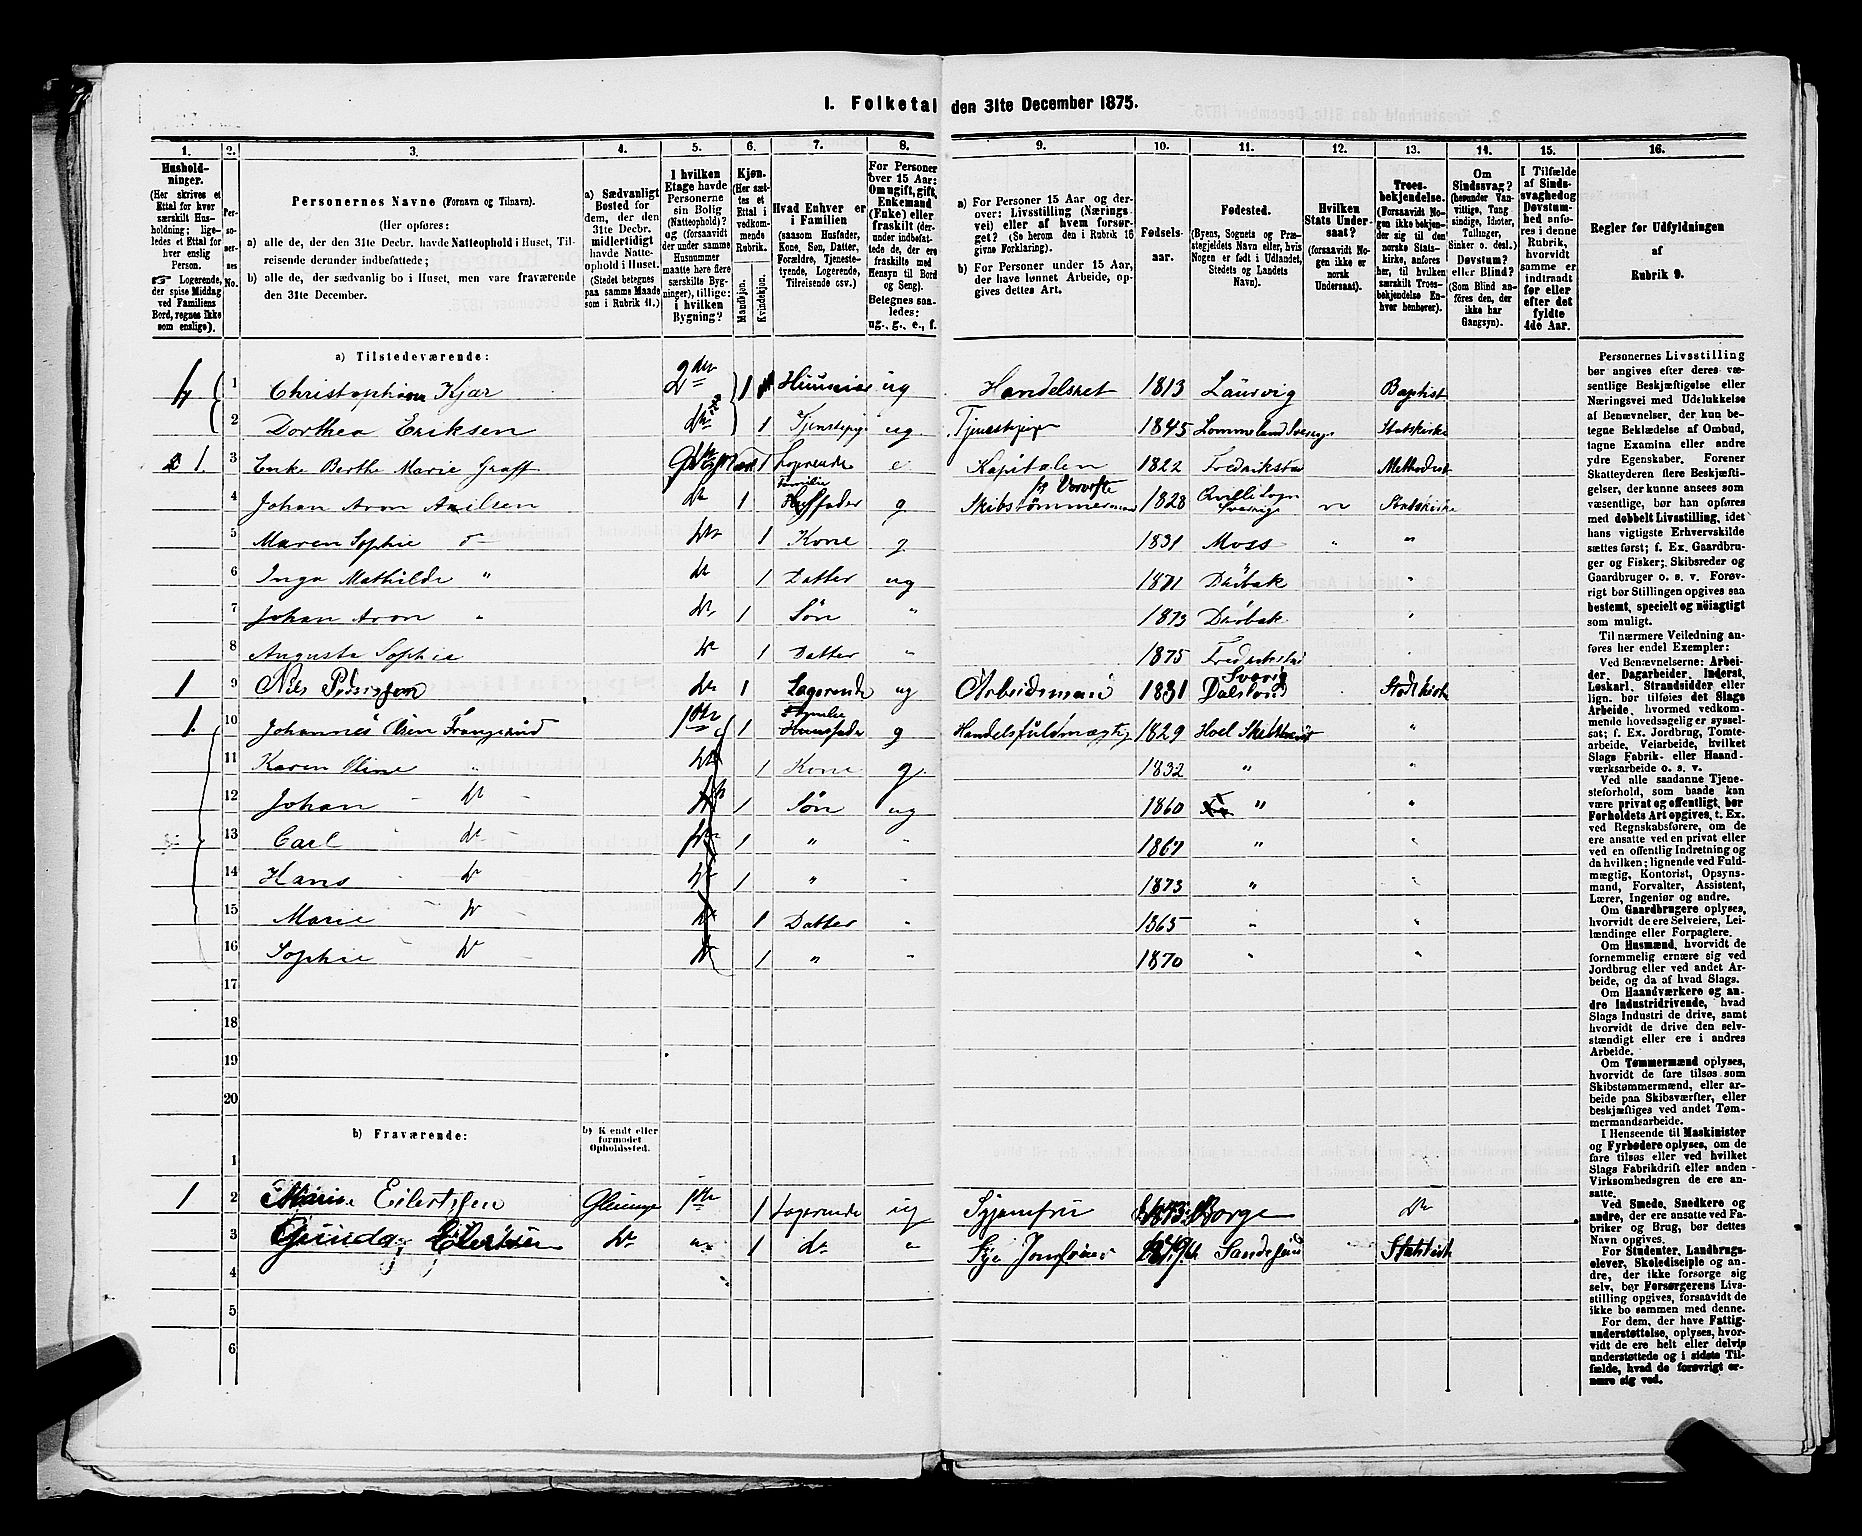 1. Folketal den 31te December 1875.
1. 2. 3. 4. 5. 6. 7. 8. 9. 10. 11. 12. 13. 14. 15. 16.
Hushold-
ninger.
(Her skrives et
Ettal for hver
særskilt Hus-
holdning; lige-
ledes et Ettal for
hver enslig
Person.
☞ Logerende,
der spise Middag
ved Familiens
Bord, regnes ikke
som enslige).
Per-
so-
ner-
nes
No.
Personernes Navne (Fornavn og Tilnavn).
(Her opføres:
a) alle de, der den 31te Decbr. havde Natteophold i Huset, Til-
reisende derunder indbefattede;
b) alle de, der sædvanlig bo i Huset, men vare fraværende
den 31te December.
a) Sædvanligt
Bosted for
dem, der den
31te Decbr.
midlertidigt
havde Natte-
ophold i Huset.
(Stedet betegnes
paa samme Maade
som i Rubrik 11.)
I hvilken
Etage havde
Personerne
sin Bolig
(Natteophold)?
og (forsaavidt
der under samme
Husnummer
maatte høre flere
særskilte Byg-
ninger), tillige:
i hvilken
Bygning?
Kjøn.
(Her sæt-
tes et
Ettal i
vedkom-
mende
Rubrik.
Mandkjøn.
Kvindekjøn.
Hvad Enhver er
i Familien
(saasom Husfader,
Kone, Søn, Datter,
Forældre, Tjeneste-
tyende, Logerende,
Tilreisende osv.)
For Personer
over 15 Aar:
Om ugift, gift,
Enkemand
(Enke) eller
fraskilt (der-
under indbefat-
tede de, der ere
fraskilte med
Hensyn til Bord
og Seng).
Betegnes saa-
ledes:
ug., g., e., f.
a) For Personer 15 Aar og der-
over: Livsstilling (Nærings-
vei) eller af hvem forsør-
get? (Se herom den i Rubrik 16
givne Forklaring).
b) For Personer under 15 Aar,
der have lønnet Arbeide, op-
gives dettes Art.
Fødsels-
aar.
Fødested.
(Byens, Sognets og Præ-
stegjeldets Navn eller, hvis
Nogen er født i Udlandet,
Stedets og Landets
Navn).
Hvilken
Stats Under-
saat?
(forsaavidt No-
gen ikke er
norsk
Undersaat).
Troes-
bekjendelse.
(Forsaavidt No-
gen ikke bekjen-
der sig til den
norske Stats-
kirke, anføres
her, til hvilken
særskilt Troes-
bekjendelse En-
hver henhører).
Om
Sindssvag?
(herunder Van-
vittige, Tung-
sindige, Idioter,
Tullinger,
Sinker o. desl.)
Døvstum?
eller Blind?
(Som Blind an-
føres den, der
ikke har
Gangsyn).
I Tilfælde
af Sinds-
svaghed og
Døvstum-
hed anfø-
res i denne
Rubrik,
hvorvidt
samme er
indtraadt
før eller
efter det
fyldte
4de Aar.
Regler for Udfyldningen
af
Rubrik 9.
a) Tilstedeværende:
1 Christophine Kjær 1 ug Handelsret 1813 Laurvig Baptist
2 Dorthea Eriksen 1 Tjenstepige ug. Tjenstepige 1845 Statskirke
1. 3 Enke Berthe Marie Graff 1 Logerende e Kapitalen 1822 Fredriksta Methodist
4 Johan Aron Axilsen do 1 Familie Husfader g Skibstømmermand 1828 Sverrige Statskirke
5 Maren Sophie do 1 Kone g 1831 Moss " "
6 Inga Mathilde " do 1 Datter ug 1871 Drøbak "
7 Johan Aron " do 1 Søn " 1873 Drøbak "
8 Augusta Sophie do 1 Datter " 1875 Fredrikstad "
1 9 Nils Pedersen do 1 Logerende ug Arbeidsmand 1831 Dalsland Sverig Statskirke
1. 10 Johannes Olsen 1ste 1 Familie Huusfader g Handelsfuldmægtig 1829 "
11 Karen Oline " do 1 Kone g. 1832 " "
12 Johan do 1 Søn ug 1860 " "
13 Carl do 1 " " 1867 " "
14 Hans do 1 " " 1873 " "
15 Marie do 1 Datter " 1865 " "
16 Sophie do 1 " " 1870 " "
17
18
19
20
b) Fraværende:
b) Kjendt eller
formodet
Opholdssted.
1
1 2 Eilertsen Gleminge 1ste 1 Logerende ug Syjomfru Borge do
3 Gunda Eilertsen do " 1 do " Sye Jomfru Sandesund Statskirk
4
5
6
Personernes Livsstilling
bør angives efter deres væ-
sentlige Beskjæftigelse eller
Næringsvei med Udelukkelse
af Benævnelser, der kun be-
tegne Beklædelse af Ombud,
tagne Examina eller andre
ydre Egenskaber. Forener
Skatteyderen flere Beskjæfti-
gelser, der kunne ansees som
væsentlige, bør han opføres
med dobbelt Livsstilling, idet
hans vigtigste Erhvervskilde
sættes først; f. Ex. Gaardbru-
ger og Fisker; Skibsreder og
Gaardbruger o. s. v. Forøv-
rigt bør Stillingen opgives saa
bestemt, specielt og nöiagtigt
som muligt.
Til nærmere Veiledning an-
føres her endel Exempler:
Ved Benævnelserne: Arbei-
der, Dagarbeider, Inderst,
Løskarl, Strandsidder eller
lign. bør tilføies det Slags
Arbeide, hvormed vedkom-
mende hovedsagelig er syssel-
sat; f. Ex. Jordbrug, Tomte-
arbeide, Veiarbeide, hvilket
Slags Fabrik- eller Haand-
værksarbeide o. s. v.
Ved alle saadanne Tjene-
steforhold, som baade kan
være privat og offentligt, bør
Forholdets Art opgives, t. Ex.
ved Regnskabsførere, om de
ere ansatte ved en privat eller
ved en offentlig Indretning og
da hvilken; lignende ved Fuld-
mægtig, Kontorist, Opsyns-
mand, Forvalter, Assistent,
Lærer, Ingeniør og andre.
Om Gaardbrugere oplyses,
hvorvidt de ere Selveiere, Lei-
lændinge eller Forpagtere.
Om Husmænd, hvorvidt de
fornemmelig ernære sig ved
Jordbrug eller ved andet Ar-
beide, og da af hvad Slags.
Om Haandværkere og an-
dre Industridrivende, hvad
Slags Industri de drive, samt
hvorvidt de drive den selv-
stændigt eller ere i andres
Arbeide.
Om Tømmermænd oplyses,
hvorvidt de fare tilsøs som
Skibstømmermænd, eller ar-
beide paa Skibsværfter, eller
beskjæftiges ved andet Tøm-
mermandsarbeide.
I Henseende til Maskinister
og Fyrbødere oplyses, om de
fare tilsøs eller ved hvilket
Slags Fabrikdrift eller anden
Virksomhedsgren de ere an-
satte.
Ved Smede, Snedkere og
andre, der ere ansatte ved Fa-
briker og Brug, bør dettes
Navn opgives.
For Studenter, Landbrugs-
elever, Skoledisciple og an-
dre, der ikke forsørge sig
selv, bør Forsørgerens Livs-
stilling opgives, forsaavidt de
ikke bo sammen med denne.
For dem, der have Fattig-
understøttelse, oplyses, hvor-
vidt de ere helt eller delvis
understøttede og i sidste Til-
fælde, hvad de forøvrigt er-
nære sig ved.